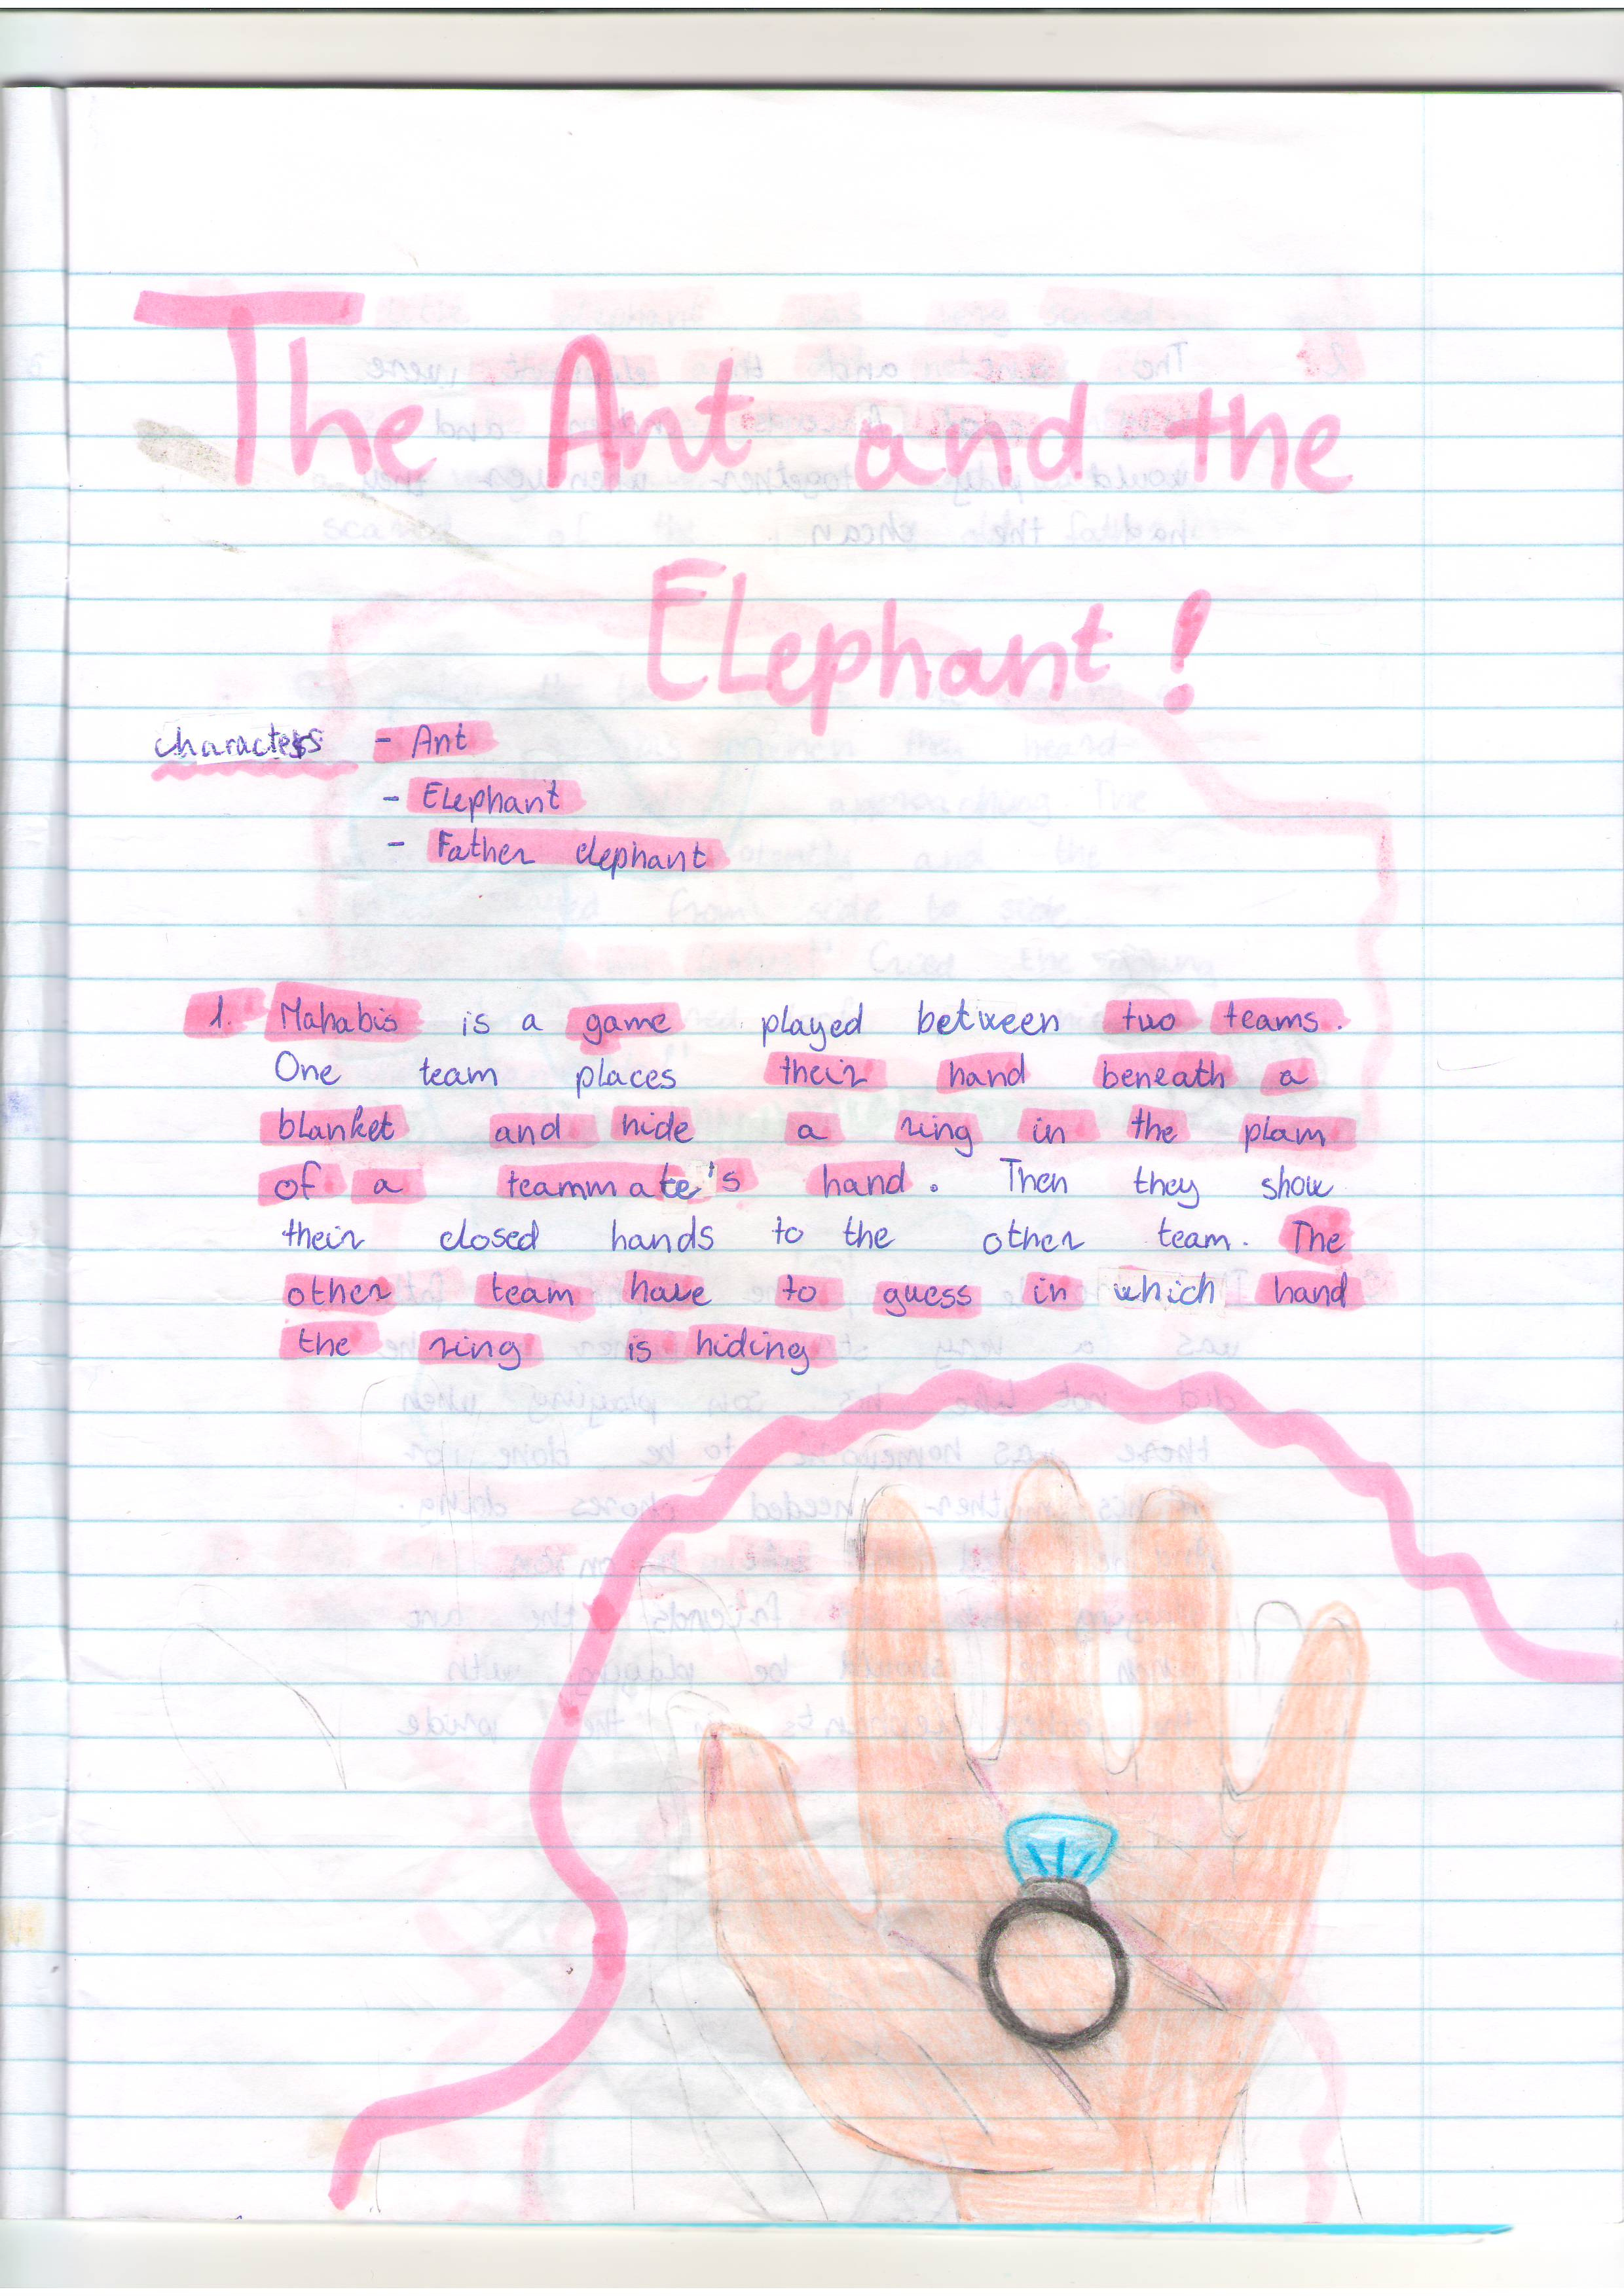 The Ant and the
ELephant!
characters - Ant
- ELephant
- Father elephant
1. Mahabis is a game played between two teams.
One team places their hand beneath a
blanket and hide a ring in the plam
of a teammate's hand. Then they show
their closed hands to the other team. The
other team have to guess in which hand
the ring is hiding